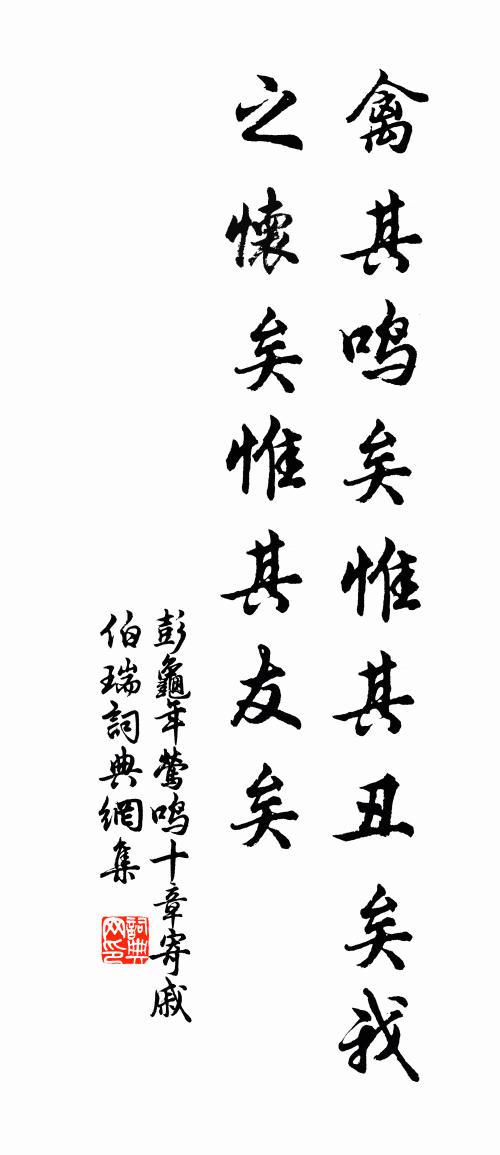 禽其鸣矣惟其丑矣我
之懷矣惟其友矣
彭龜年莺鸣十章寄戚
伯瑞詞典網集
詞典
网印